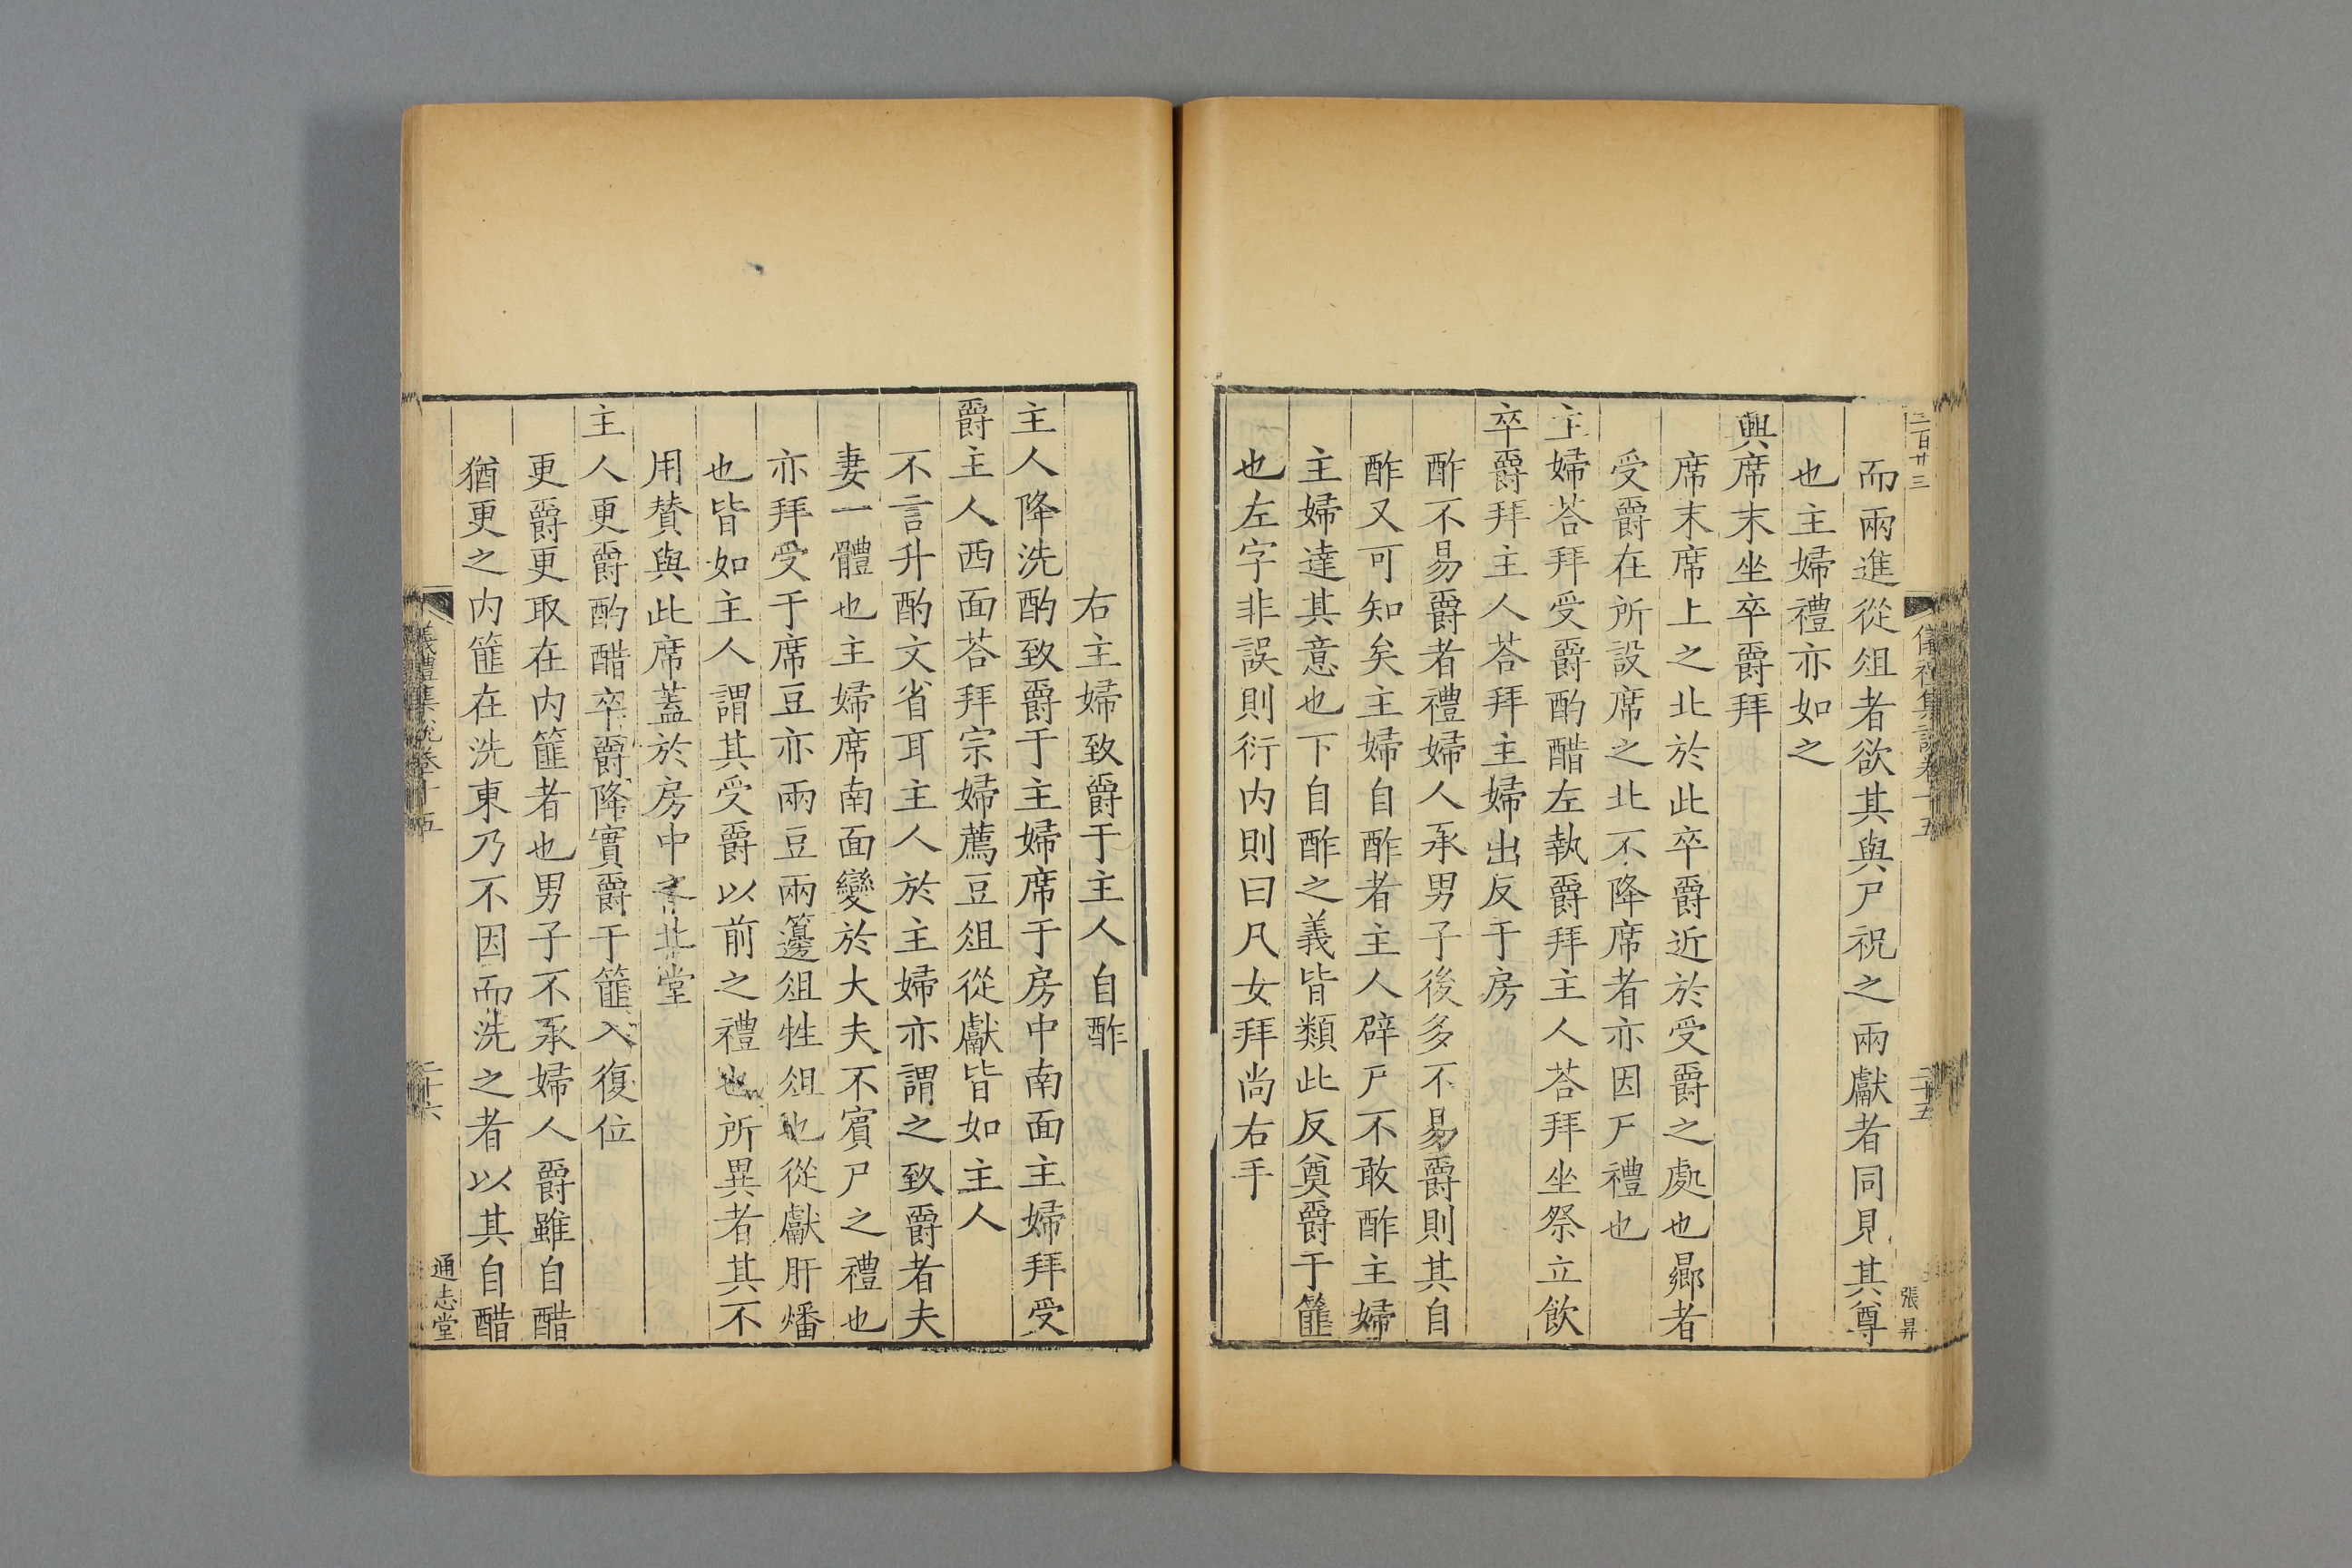 二百廿三
儀禮集說卷十五
二十五
張昇
而兩進從俎者欲其與尸祝之兩獻者同見其尊
也主婦禮亦如之
興席末坐卒爵拜
席末席上之北於此卒爵近於受爵之處也鄉者
受爵在所設席之北不降席者亦因尸禮也
主婦荅拜受爵酌醋左執爵拜主人荅拜坐祭立飲
卒爵拜主人荅拜主婦出反于房
酢不易爵者禮婦人承男子後多不易爵則其自
酢又可知矣主婦自酢者主人辟尸不敢酢主婦
主婦達其意也下自酢之義皆類此反奠爵于篚
也左字非誤則衍内則曰凡女拜尚右手
右主婦致爵于主人自酢
主人降洗酌致爵于主婦席于房中南面主婦拜受
爵主人西面荅拜宗婦薦豆俎從獻皆如主人
不言升酌文省耳主人於主婦亦謂之致爵者夫
妻一體也主婦席南面變於大夫不賓尸之禮也
亦拜受于席豆亦兩豆兩籩俎牲俎也從獻肝燔
也皆如主人謂其受爵以前之禮也所異者其不
用賛與此席蓋於房中北堂
主人更爵酌醋卒爵降實爵于篚入復位
更爵更取在内篚者也男子不承婦人爵雖自醋
猶更之内篚在洗東乃不因而洗之者以其自醋
儀禮集說卷十五
二十六
通志堂